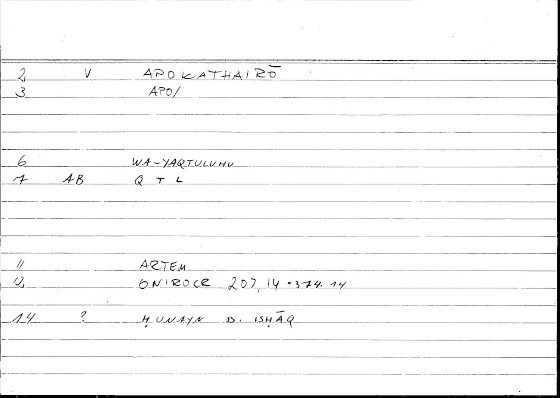 2 V APOKATHAIRŌ
3 APO/
6 WA-YAQTULUHU
7 AB Q T L
11 ARTEM
12 ONIROCR 207,14 • 374.14
14 ? ḤUNAYN B. ISḤĀQ